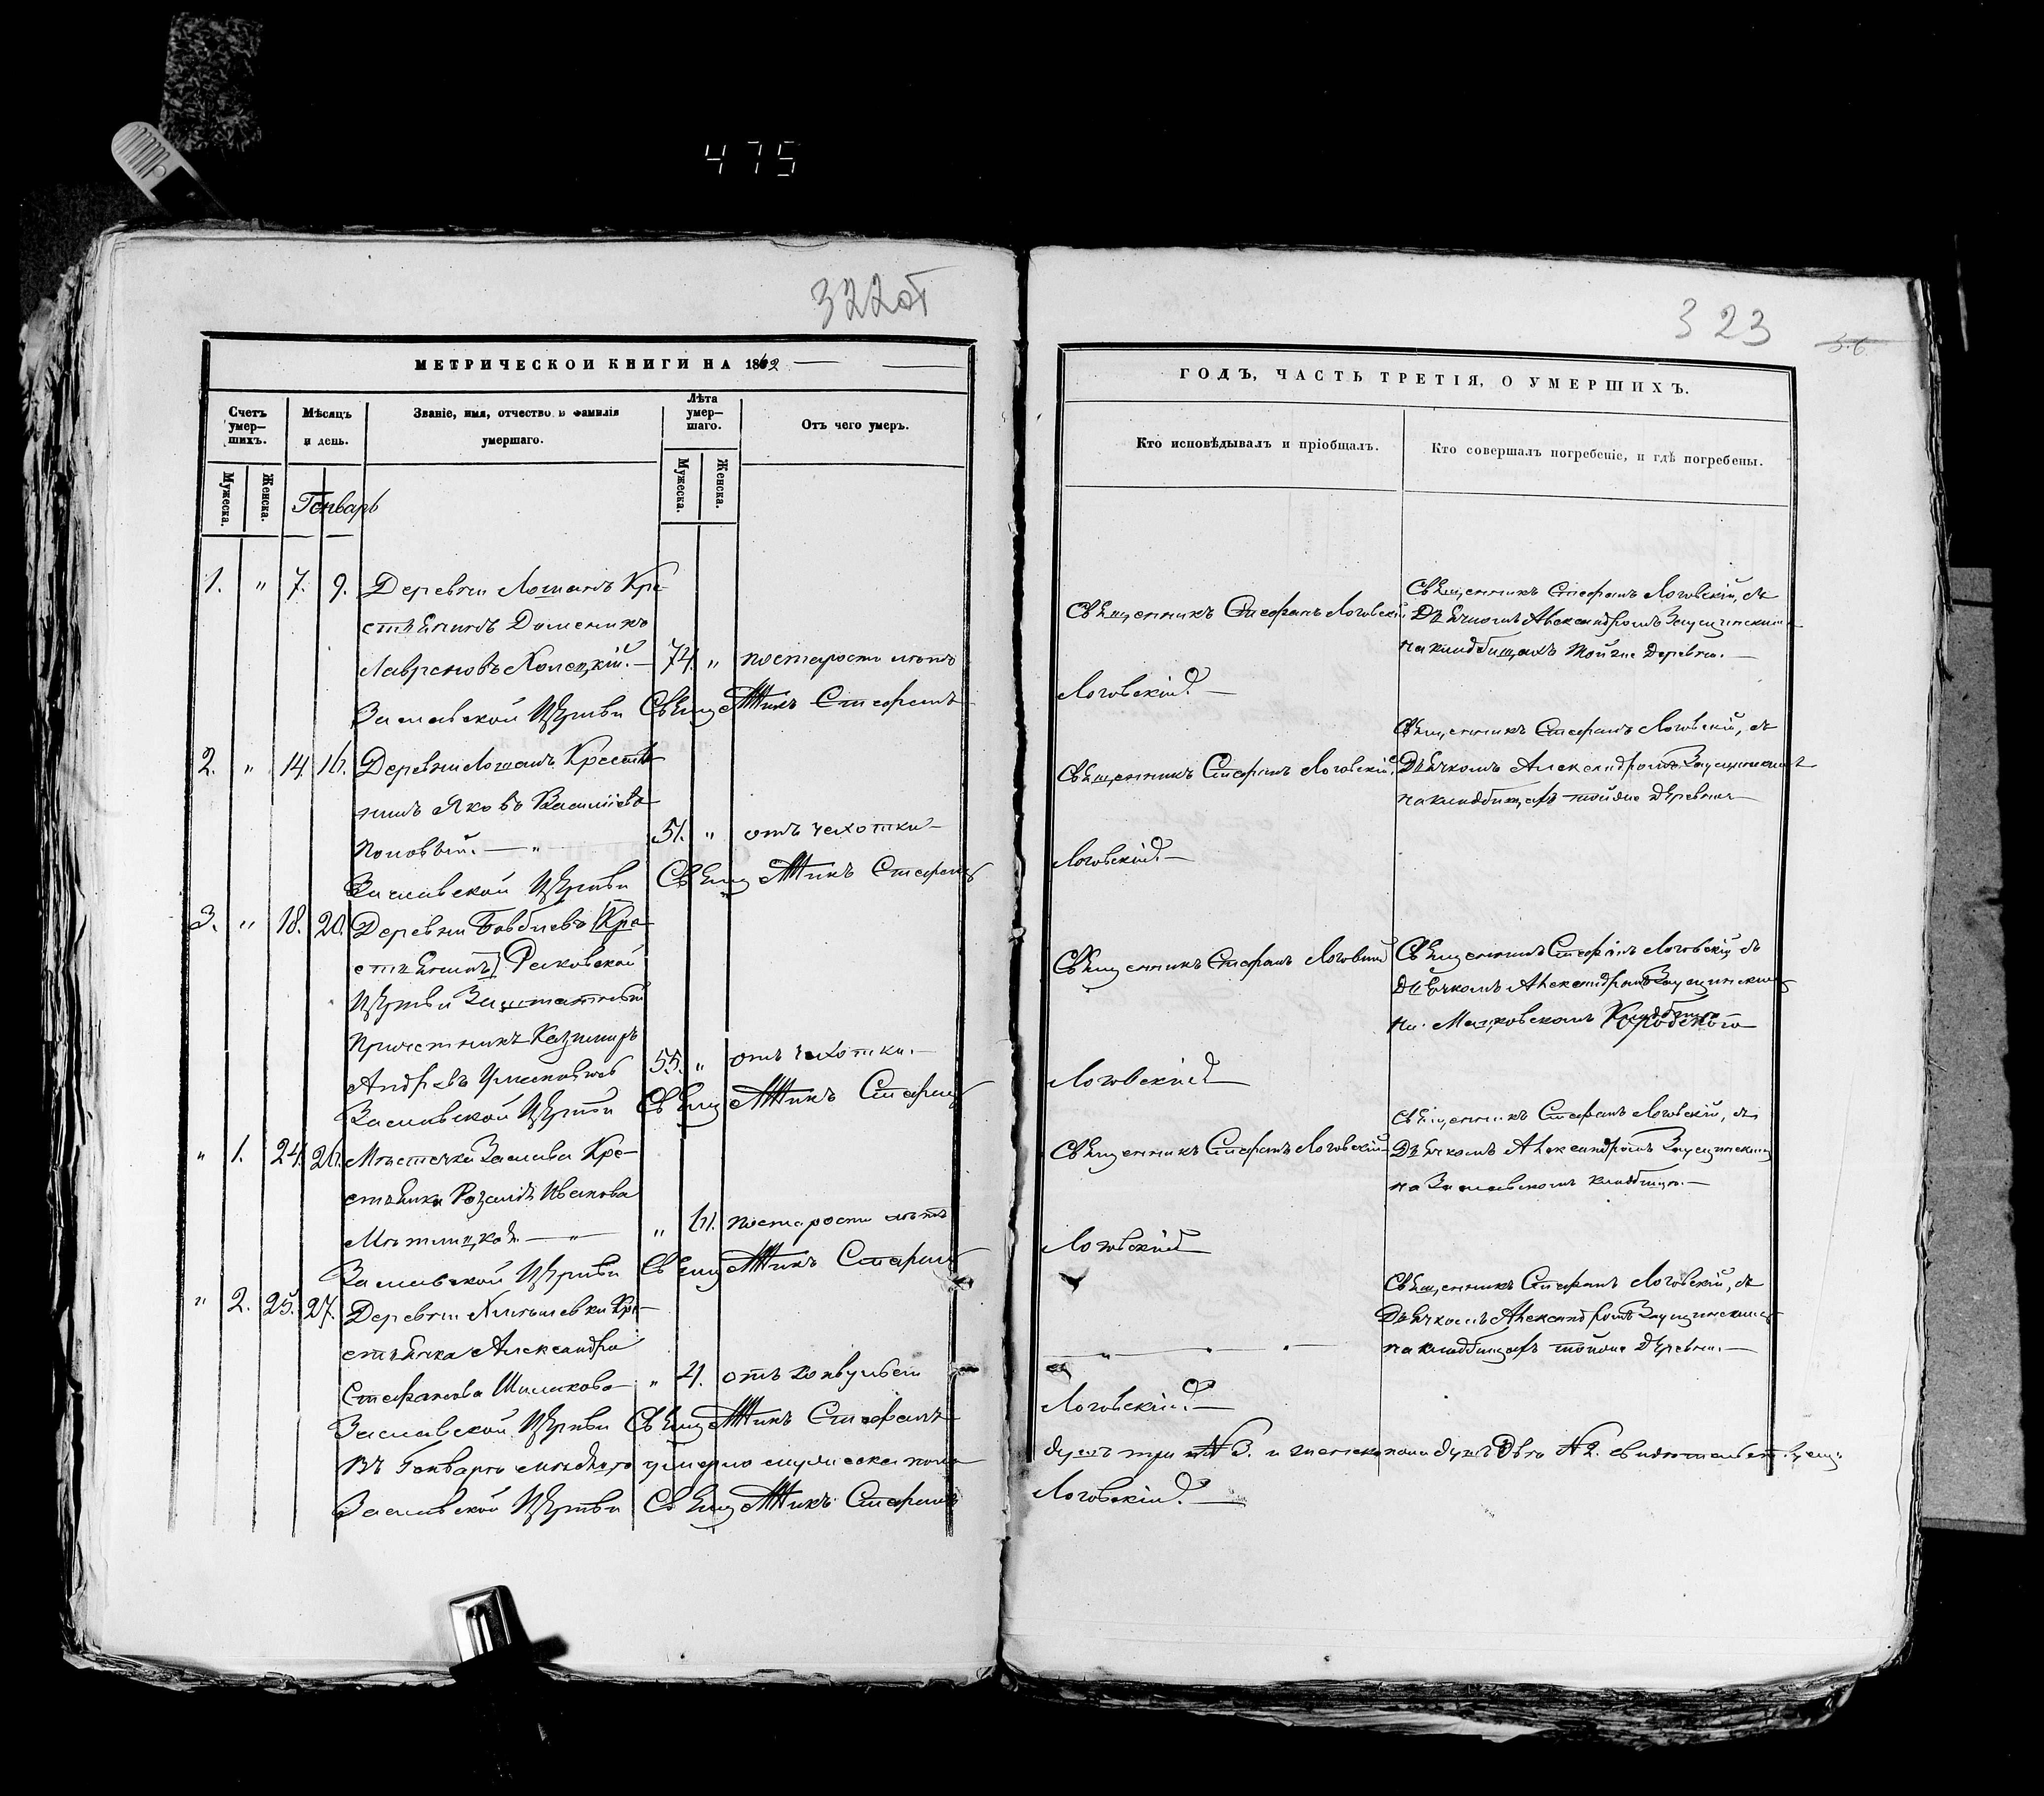 475
322об
МЕТРИЧЕСКОЙ КНИГИ НА 1862
Счетъ умер-
шихъ.
Мѣсяцъ
и день.
Званіе, имя, отчество и фамилія
умершаго.
Лѣта
умер-
шаго.
Отъ чего умеръ.
Мужеска.
Женска.
Генварь
Мужеска.
Женска.
1. " 7. 9. Деревни Лошанъ Кре-
стьянинъ Доменикъ
Лавреновъ Холецкій. — 74. " постарости лѣтъ
Заславской Церкви Священникъ Стефанъ
2. " 14. 16. Деревни Лошанъ Крестья-
нинъ Яковъ Васильевъ
51. " отъ чахотки —
Заславской Церкви Священникъ Стефанъ
3. " 18. 20. Деревни Кре-
стьянинъ Раковской
Церкви Заштатный
Причетникъ Казимиръ
Андреевъ 55. " отъ чахотки. —
Заславской Церкви Священникъ Стефанъ
" 1. 24. 26. Мѣстечка Заслава Кре-
стьянка Розалія Иванова
" 61. постарости лѣтъ
Заславской Церкви Священникъ Стефанъ
" 2. 25. 27. Деревни Кре-
стьянка Александра
Стефанова " 4. отъ конвульсіи
Заславской Церкви Священникъ Стефанъ
Въ Генварѣ мѣсяцѣ умерло мужеска пола
Заславской Церкви Священникъ Стефанъ
323
ГОДЪ, ЧАСТЬ ТРЕТІЯ, О УМЕРШИХЪ.
Кто исповѣдывалъ и пріобщалъ.
Кто совершалъ погребеніе, и гдѣ погребены.
Священникъ Стефанъ Логовскій
Священникъ Стефанъ Логовскій, съ
Дьячкомъ Александромъ
на кладбищахъ той же Деревни. —
Логовскій. —
Священникъ Стефанъ Логовскій,
Священникъ Стефанъ Логовскій, съ
Дьячкомъ Александромъ
на кладбищахъ той же деревни —
Логовскій. —
Священникъ Стефанъ Логовскій
Священникъ Стефанъ Логовскій съ
Дьячкомъ Александромъ
на
Логовскій —
Священникъ Стефанъ Логовскій
Священникъ Стефанъ Логовскій, съ
Дьячкомъ Александромъ
на Заславскомъ кладбищѣ. —
Логовскій
Священникъ Стефанъ Логовскій, съ
Дьячкомъ Александромъ
на кладбищахъ той же деревни. —
Логовскій. —
душъ три N 3. и женска пола душъ двѣ N 2.
Логовскій. —